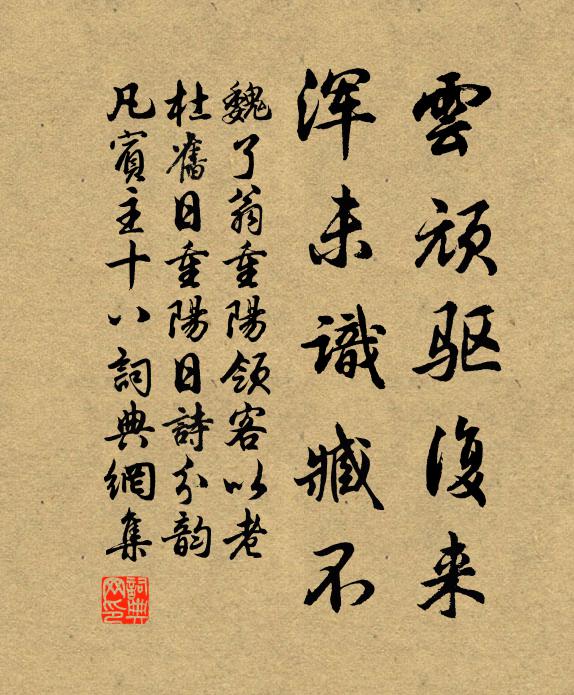 雲頑驱復来
浑未識臧不
魏了翁重陽領客以老
杜舊日重陽日詩分韵
凡賓主十八詞典網集
詞典网印